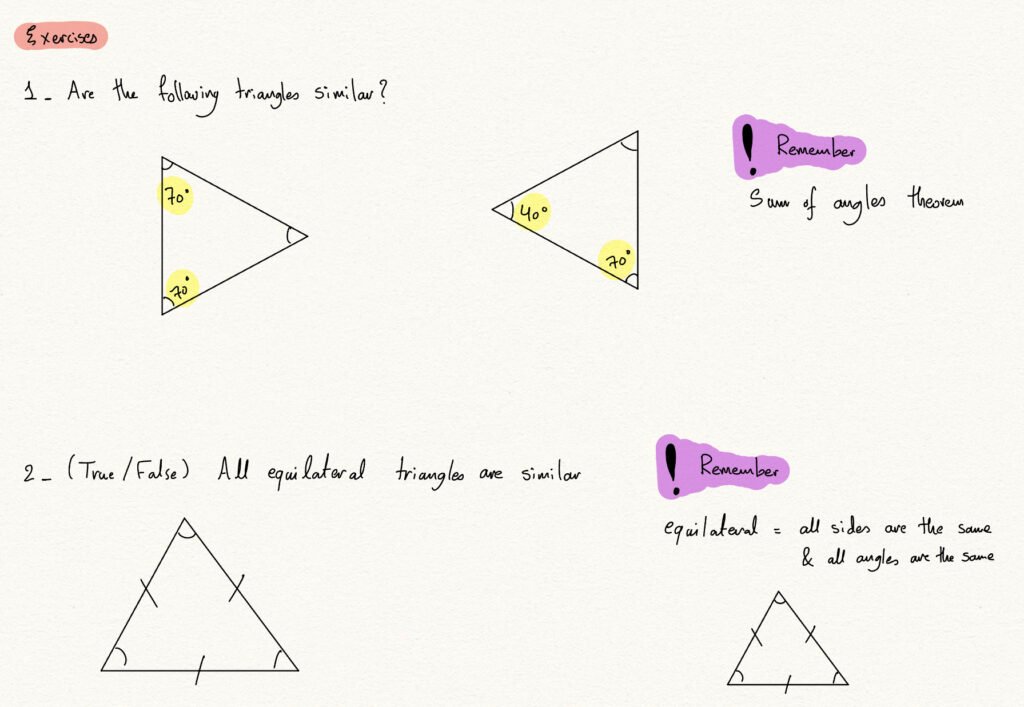 Exercises
1_ Are the following triangles similar?
! Remember
Sum of angles theorem
70°
70°
40°
70°
2_ (True/False) All equilateral triangles are similar
! Remember
equilateral = all sides are the same
& all angles are the same